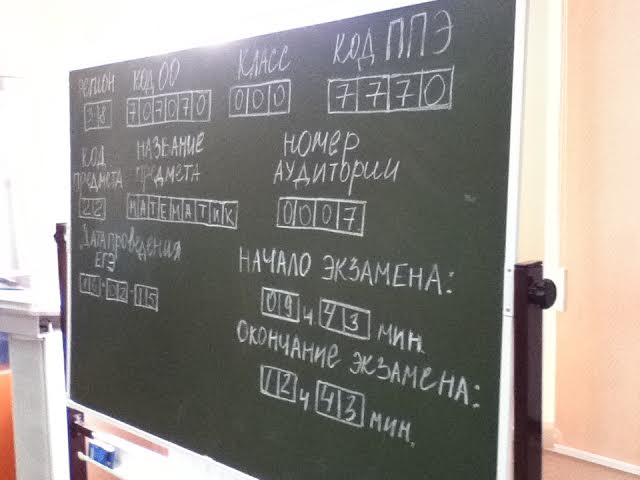 регион код ОО класс код ППЭ
38 707070 000 7770
код название номер
предмета предмета аудитории
22 МАТЕМАТИК 0007
Дата проведения
ЕГЭ
02 15
НАЧАЛО ЭКЗАМЕНА:
09 ч 43 мин.
ОКОНЧАНИЕ ЭКЗАМЕНА:
12 ч 43 мин.